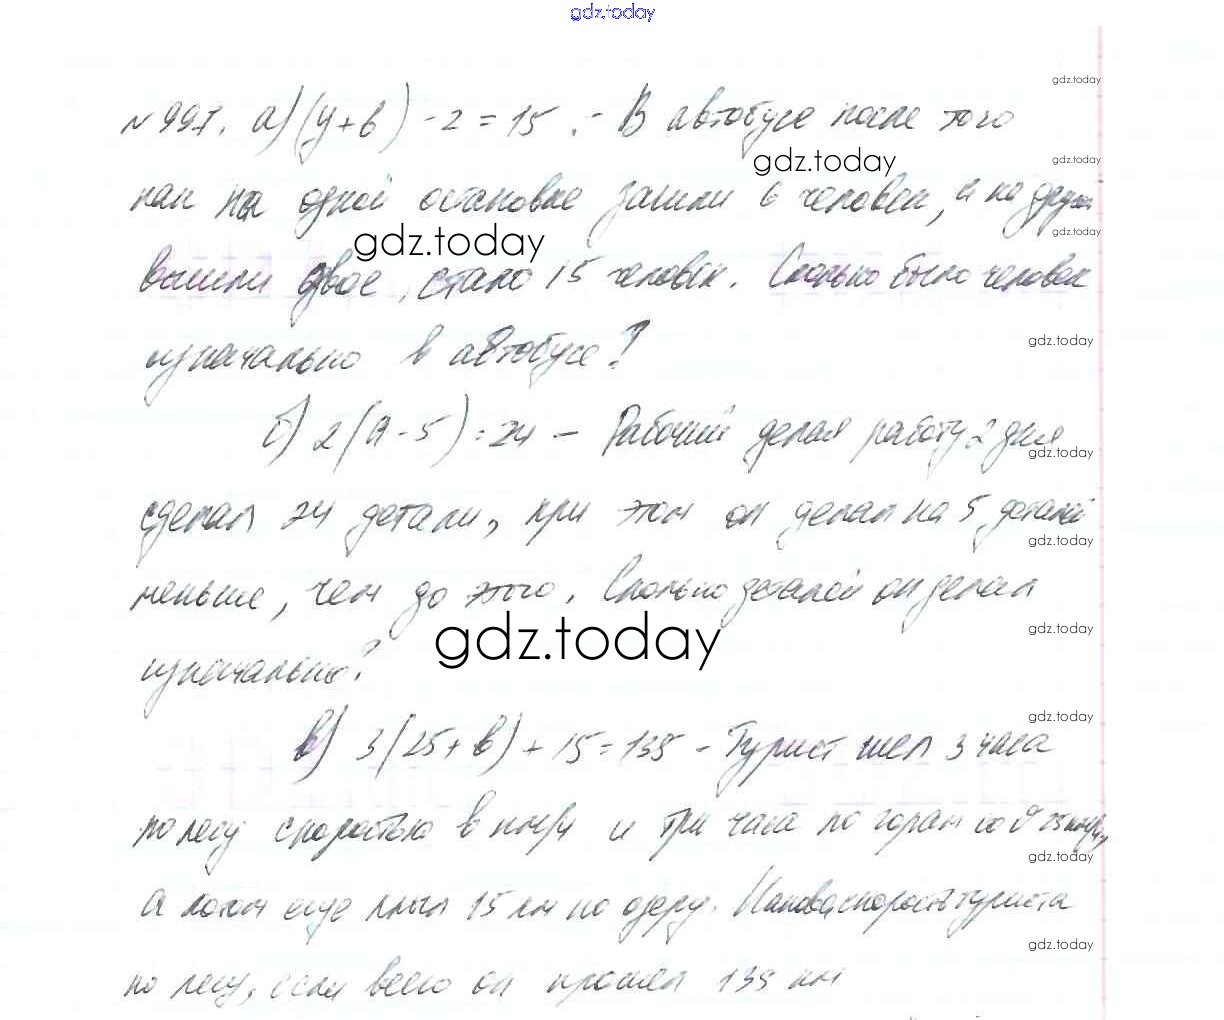 gdz.today
gdz.today
№ 997. а) (y+6) - 2 = 15 . - В автобусе после того
gdz.today
gdz.today
как на одной остановке зашли 6 человек, и на другой
gdz.today
gdz.today
вышли двое, стало 15 человек. Сколько было человек
изначально в автобусе?
gdz.today
б) 2(a - 5) = 24 - Рабочий делая работу 2 дня
gdz.today
сделал 24 детали, при этом он делал на 5 деталей
gdz.today
меньше, чем до этого. Сколько деталей он делал
gdz.today
gdz.today
изначально?
gdz.today
в) 3(25 + b) + 15 = 135 - Турист шел 3 часа
по лесу скоростью b км/ч и три часа по горам со 25 км/ч,
gdz.today
а потом еще плыл 15 км по озеру. Какова скорость туриста
gdz.today
по лесу, если всего он прошел 135 км